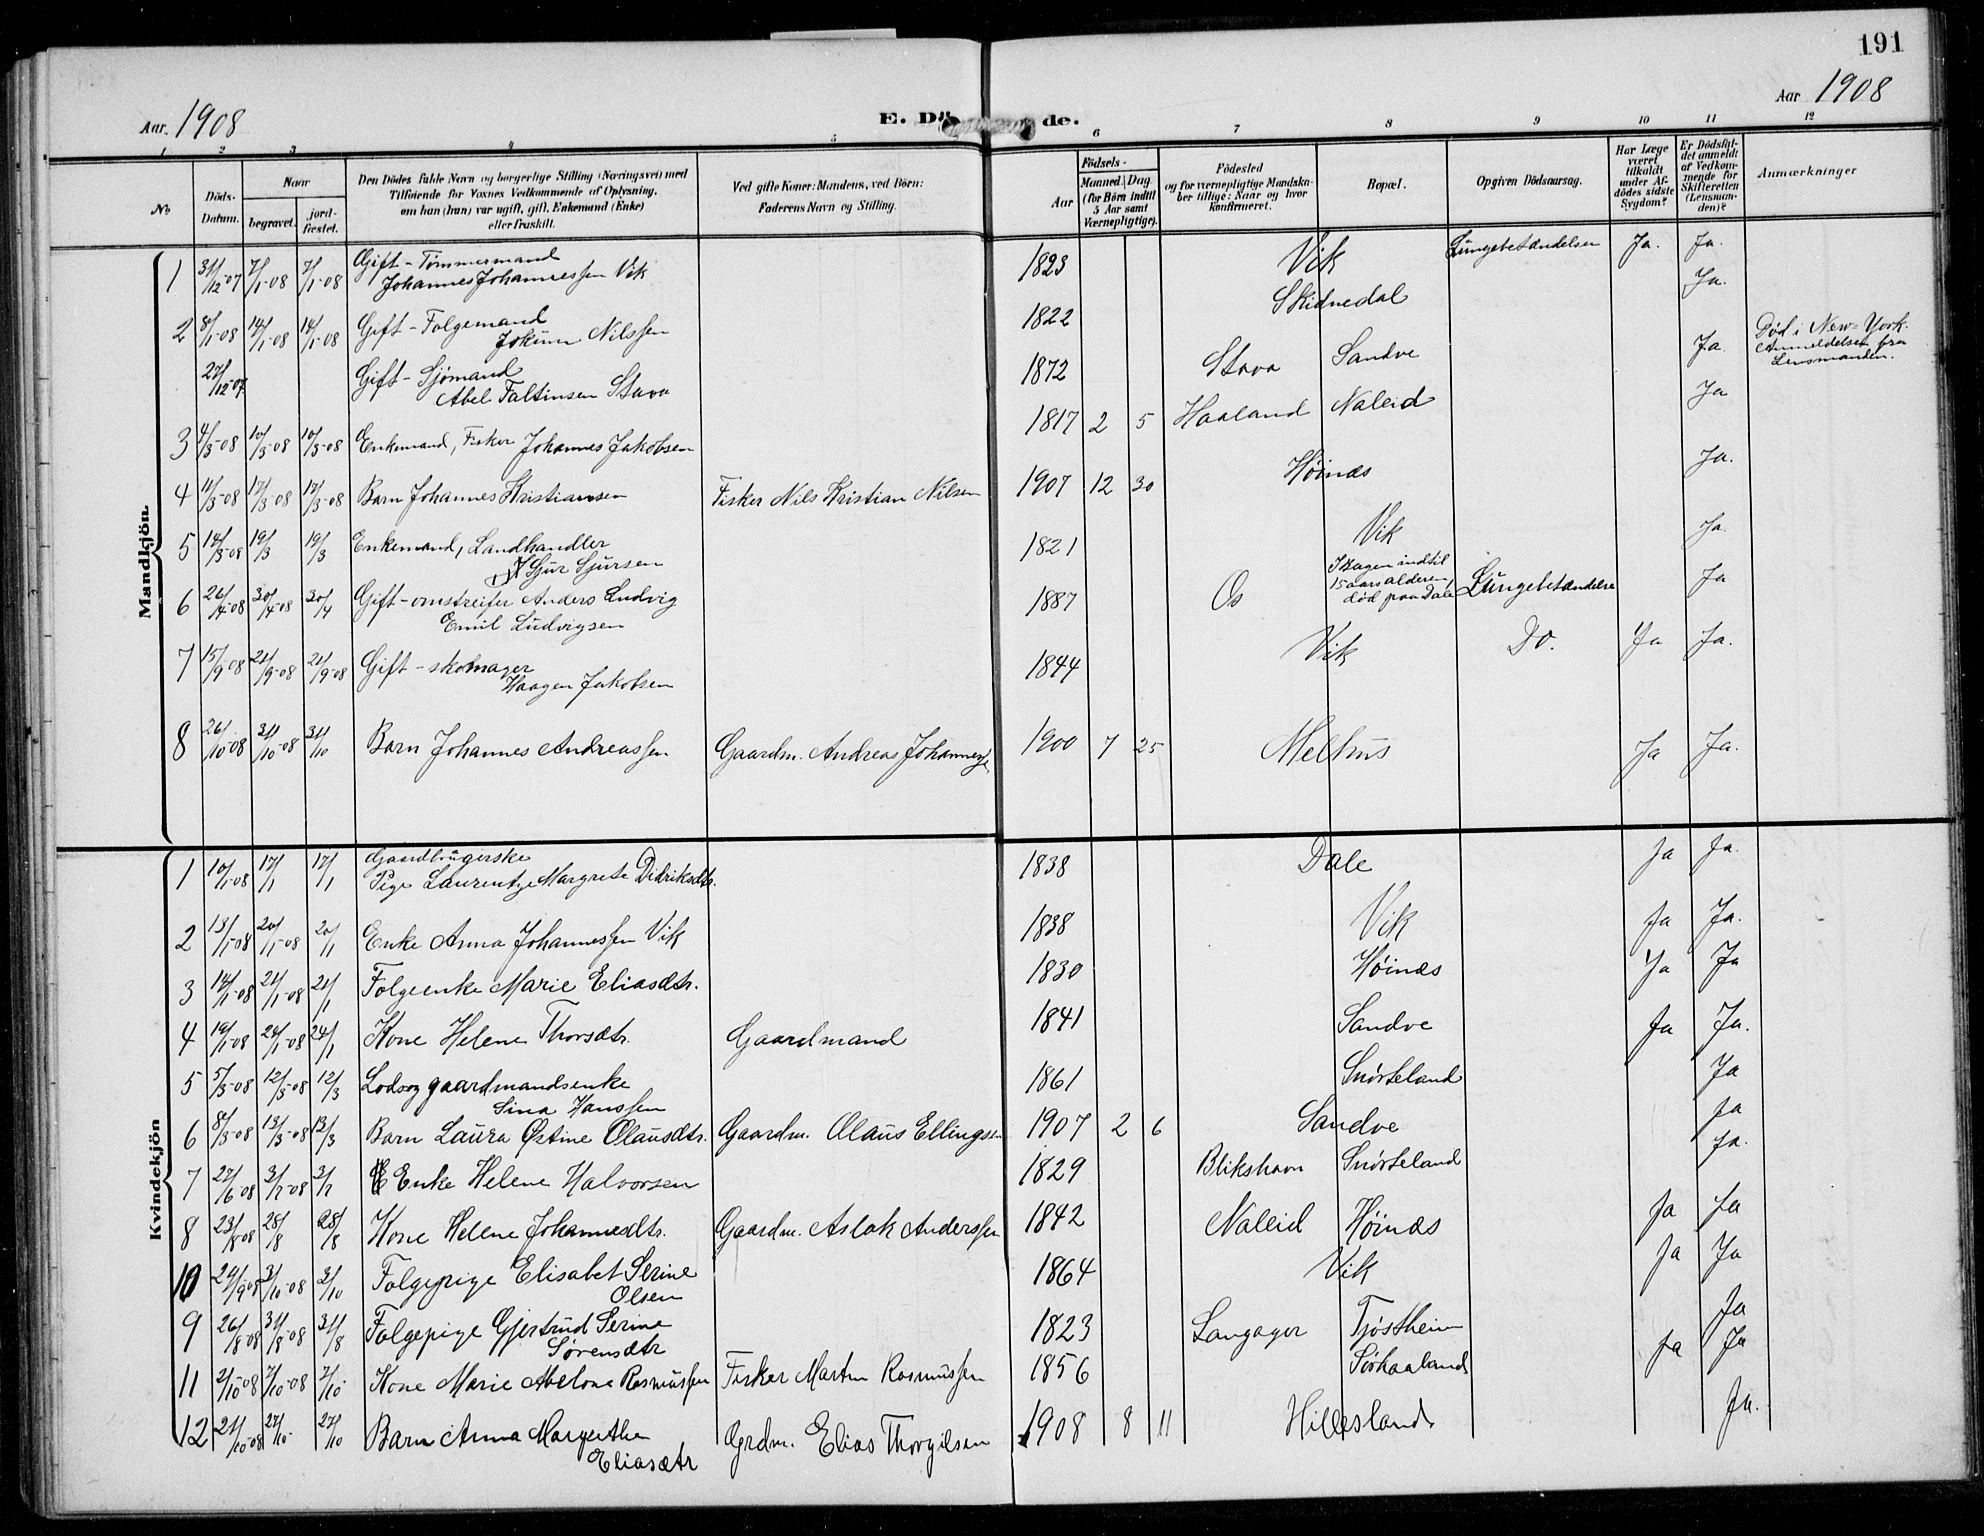 191
Aar 1908
Aar 1908
E. Dö de.
1 2 3 4 5 6 7 8 9 10 11 12
No
Döds-
Datum.
Naar
begravet.
jord-
fæstet.
Den Dödes fulde Navn og borgerlige Stilling (Næringsvei) med
Tilföiende for Voxnes Vedkommende af Oplysning,
om han (hun) var ugift, gift, Enkemand (Enke)
eller fraskilt.
Ved gifte Koner: Mandens, ved Börn:
Faderens Navn og Stilling.
Födsels-
Aar
Maaned. Dag
(for Börn indtil
5 Aar samt
Værnepligtige).
Födested
og for værnepligtige Mandskaber
tillige: Naar og hvor
konfirmeret.
Bopæl.
Opgiven Dödsaarsag.
Har Læge
været
tilkaldt
under Afdödes
sidste
Sygdom?
Er Dödsfaldet
anmeldt
af Vedkommende
for
Skifteretten
(Lensmanden)?
Anmærkninger
Mandkjön.
1 31/12-07 7/1-08 7/1-08 Gift - Tømmermand
Johannes Johannessen Vik 1823 Vik Lungebetændelse Ja. Ja.
2 8/1-08 14/1-08 14/1-08 Gift - Folgemand
Jokum Nilssen 1822 Skidnedal Ja.
27/12-07. Gift - Sjømand
Abel Faltinsen Stava 1872 Stava Sandve Ja Død i New-York.
Anmeldelse fra
Lensmanden.
3 4/3-08 10/3-08 10/3-08 Enkemand, Fisker Johannes Jakobsen 1817 2 5 Haaland Naleid Ja
4 11/3-08 17/3-08 17/3-08 Barn Johannes Kristiansen Fisker Nils Kristian Nilsen 1907 12 30 Høinæs Ja.
5 14/3-08 19/3 19/3 Enkemand, Landhandler
Sjur Sjursen 1821 Vik Ja.
6 26/4-08 30/4-08 30/4 Gift - omstreifer Anders Ludvig
Emil Ludvigsen 1887 Os Skagen indtil
15 aars alderen,
død paa Dale Lungebetændelse Ja
7 15/9-08 21/9-08 21/9-08 Gift - skomager
Haagen Jakobsen 1844 Vik Do. Ja Ja.
8 26/10-08 31/10-08 31/10 Barn Johannes Andreassen Gaardm. Andreas Johannessen 1900 7 25 Melhus Ja Ja.
Kvindekjön
1 10/1-08 17/1 17/1 Gaardbrugerske
Pige Laurentze Margrete Didriksdtr. 1838 Dale Ja Ja.
2 13/1-08 20/1-08 20/1 Enke Anna Johannessen Vik 1838 Vik Ja Ja.
3 14/1-08 21/1-08 21/1 Folgeenke Marie Eliasdtr. 1830 Høinæs Ja Ja
4 19/1-08 24/1-08 24/1 Kone Helene Thorsdtr. Gaardmand 1841 Sandve Ja Ja.
5 5/3-08 12/3-08 12/3 Lods og gaardmandsenke
Sina Hanssen 1861 Snørteland Ja
6 8/3-08 13/3-08 13/3 Barn Laura Østine Olausdtr. Gaardm. Olaus Ellingsen 1907 2 6 Sandve Ja
7 27/6-08 3/7-08 3/7 Enke Helene Halvorsen 1829 Blikshavn Snørteland Ja.
8 23/8-08 28/8 28/8 Kone Helene Johannesdtr. Gaardm. Aslak Anderssen 1842 Naleid Høinæs Ja Ja
10 24/9-08 3/10-08 3/10 Folgepige Elisabet Serine
Olsen 1864 Vik Ja Ja
9 26/8-08 31/8-08 31/8 Folgepige Gjertrud Serine
Sørensdtr 1823 Langager Tjøstheim Ja
11 2/10-08 7/10-08 7/10 Kone Marie Abelone Rasmussen Fisker Martin Rasmussen 1856 Sørhaaland Ja Ja
12 21/10-08 27/10 27/10 Barn Anna Margrethe
Eliasdtr Grdm. Elias Thorgilsen 1908 8 11 Hillesland Ja.